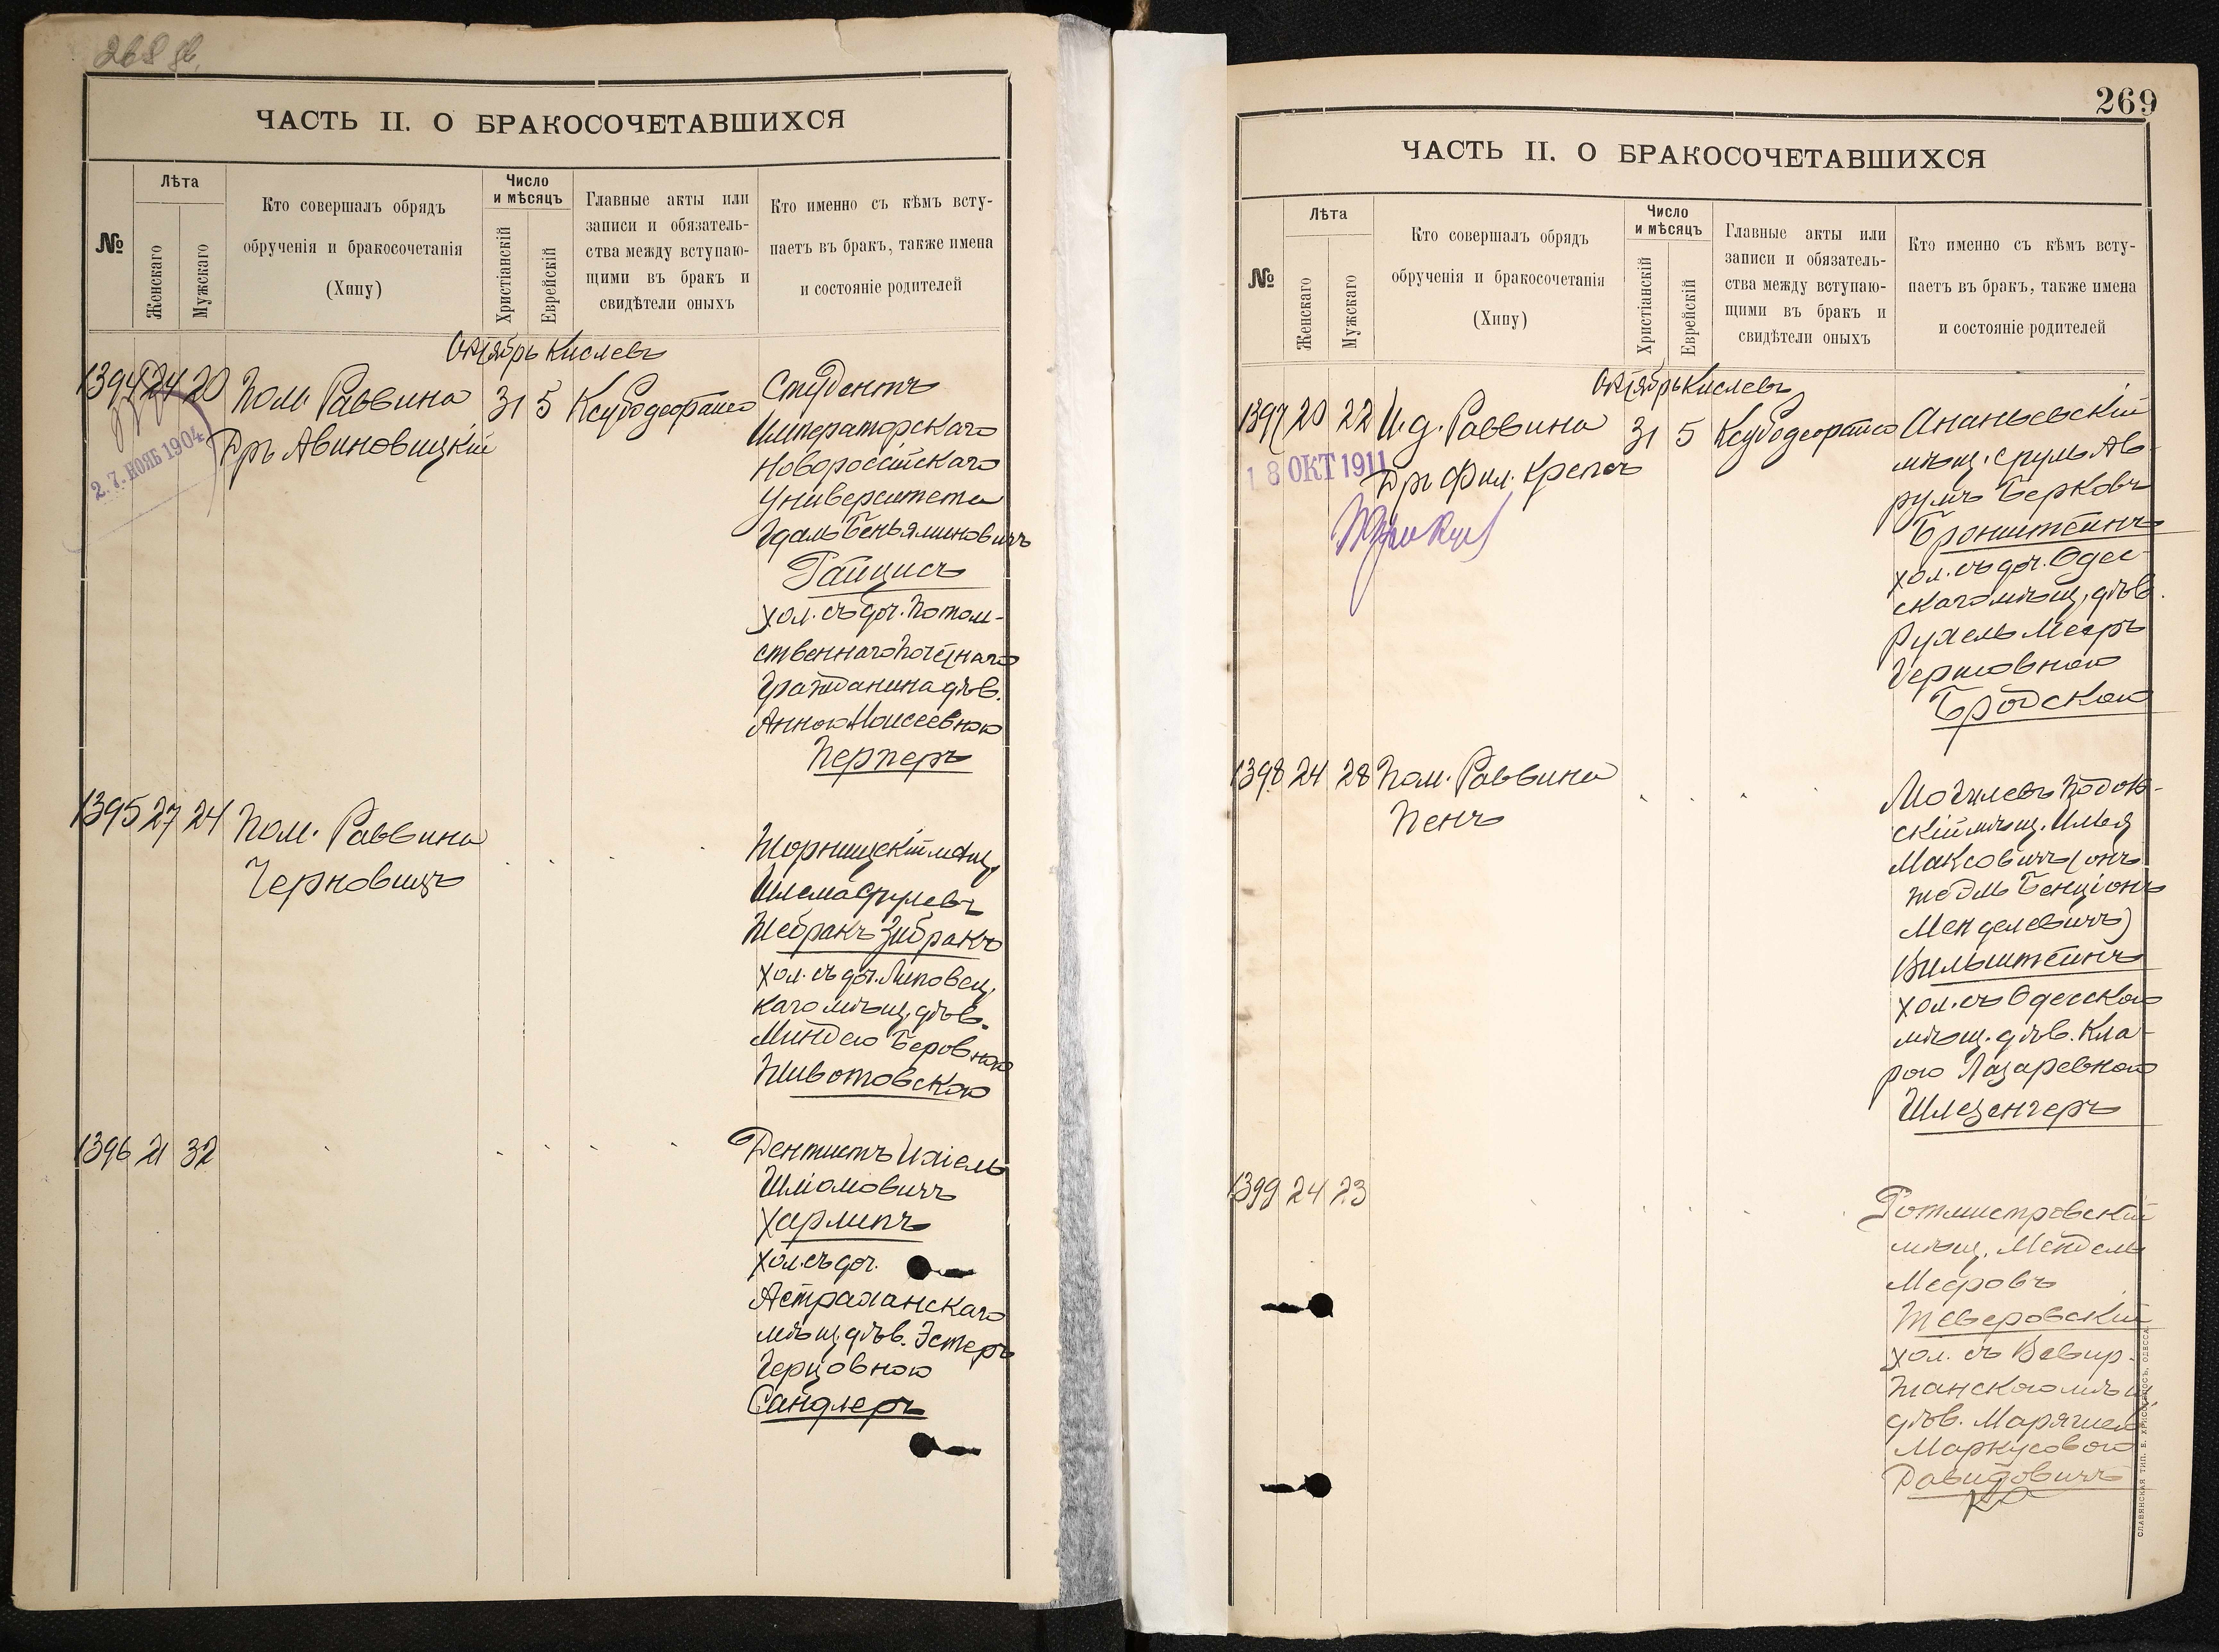 268 об.
ЧАСТЬ II. О БРАКОСОЧЕТАВШИХСЯ
№
Лѣта
Женскаго
Мужскаго
Кто совершалъ обрядъ
обрученія и бракосочетанія
(Хипу)
Число
и мѣсяцъ
Христіанскій
Еврейскій
Главные акты или
записи и обязатель-
ства между вступаю-
щими въ бракъ и
свидѣтели оныхъ
Кто именно съ кѣмъ всту-
паетъ въ бракъ, также имена
и состояніе родителей
Октябрь Кислевъ
1394 24 20 Пом. Раввина 31 5
Дръ Авиновицкій
2.7. НОЯБ 1904
Студентъ
Императорскаго
Новороссійскаго
Университета
Гдаль Беньяминовичъ
Гайцисъ
хол. съ доч. потом-
ственнаго почетнаго
гражданина дѣв.
Анною Моисеевною
Перперъ
1395 27 24 Пом. Раввина
Черновицъ
Жорнищскій мѣщ.
Шлема Срулевъ
Жебракъ Зибракъ
хол. съ доч. Липовец.
каго мѣщ. дѣв.
Миндею Беровною
Животовскою
1396 21 32
Дентистъ Ихіель
Шліомовичъ
Харлипъ
хол. съ доч.
Астраханскаго
мѣщ. дѣв. Эстеръ
Герцовною
Сандлеръ
269
ЧАСТЬ II. О БРАКОСОЧЕТАВШИХСЯ
№
Лѣта
Женскаго
Мужскаго
Кто совершалъ обрядъ
обрученія и бракосочетанія
(Хипу)
Число
и мѣсяцъ
Христіанскій
Еврейскій
Главные акты или
записи и обязатель-
ства между вступаю-
щими въ бракъ и
свидѣтели оныхъ
Кто именно съ кѣмъ всту-
паетъ въ бракъ, также имена
и состояніе родителей
Октябрь Кислевъ
1397 20 22 И.д. Раввина 31 5
Дръ Фил. Крепсъ
18 ОКТ 1911
Ананьевскій
мѣщ. Сруль Ав-
румъ Берковъ
Бронштейнъ
хол. съ доч. Одес-
скаго мѣщ. дѣв.
Рухель Мееръ
Гершовною
Бродскою
1398 24 28 Пом. Раввина
Пенъ
Могилевъ Подоль-
скій мѣщ. Илья
Максовичъ (онъ
же Эль Бенціонъ
Менделевичъ)
Вильштейнъ
хол. съ Одесскою
мѣщ. дѣв. Кла-
рою Лазаревною
Шлезенгеръ
1399 24 23
Ротмистровскій
мѣщ. Мендель
Мееровъ
Тверовскій
хол. съ Вевир-
жанскою мѣщ.
дѣв. Маряшею
Маркусовою
Давидовичъ
СЛАВЯНСКАЯ ТИП. Е. ХРИСОГЕЛОСЪ, ОДЕССА.